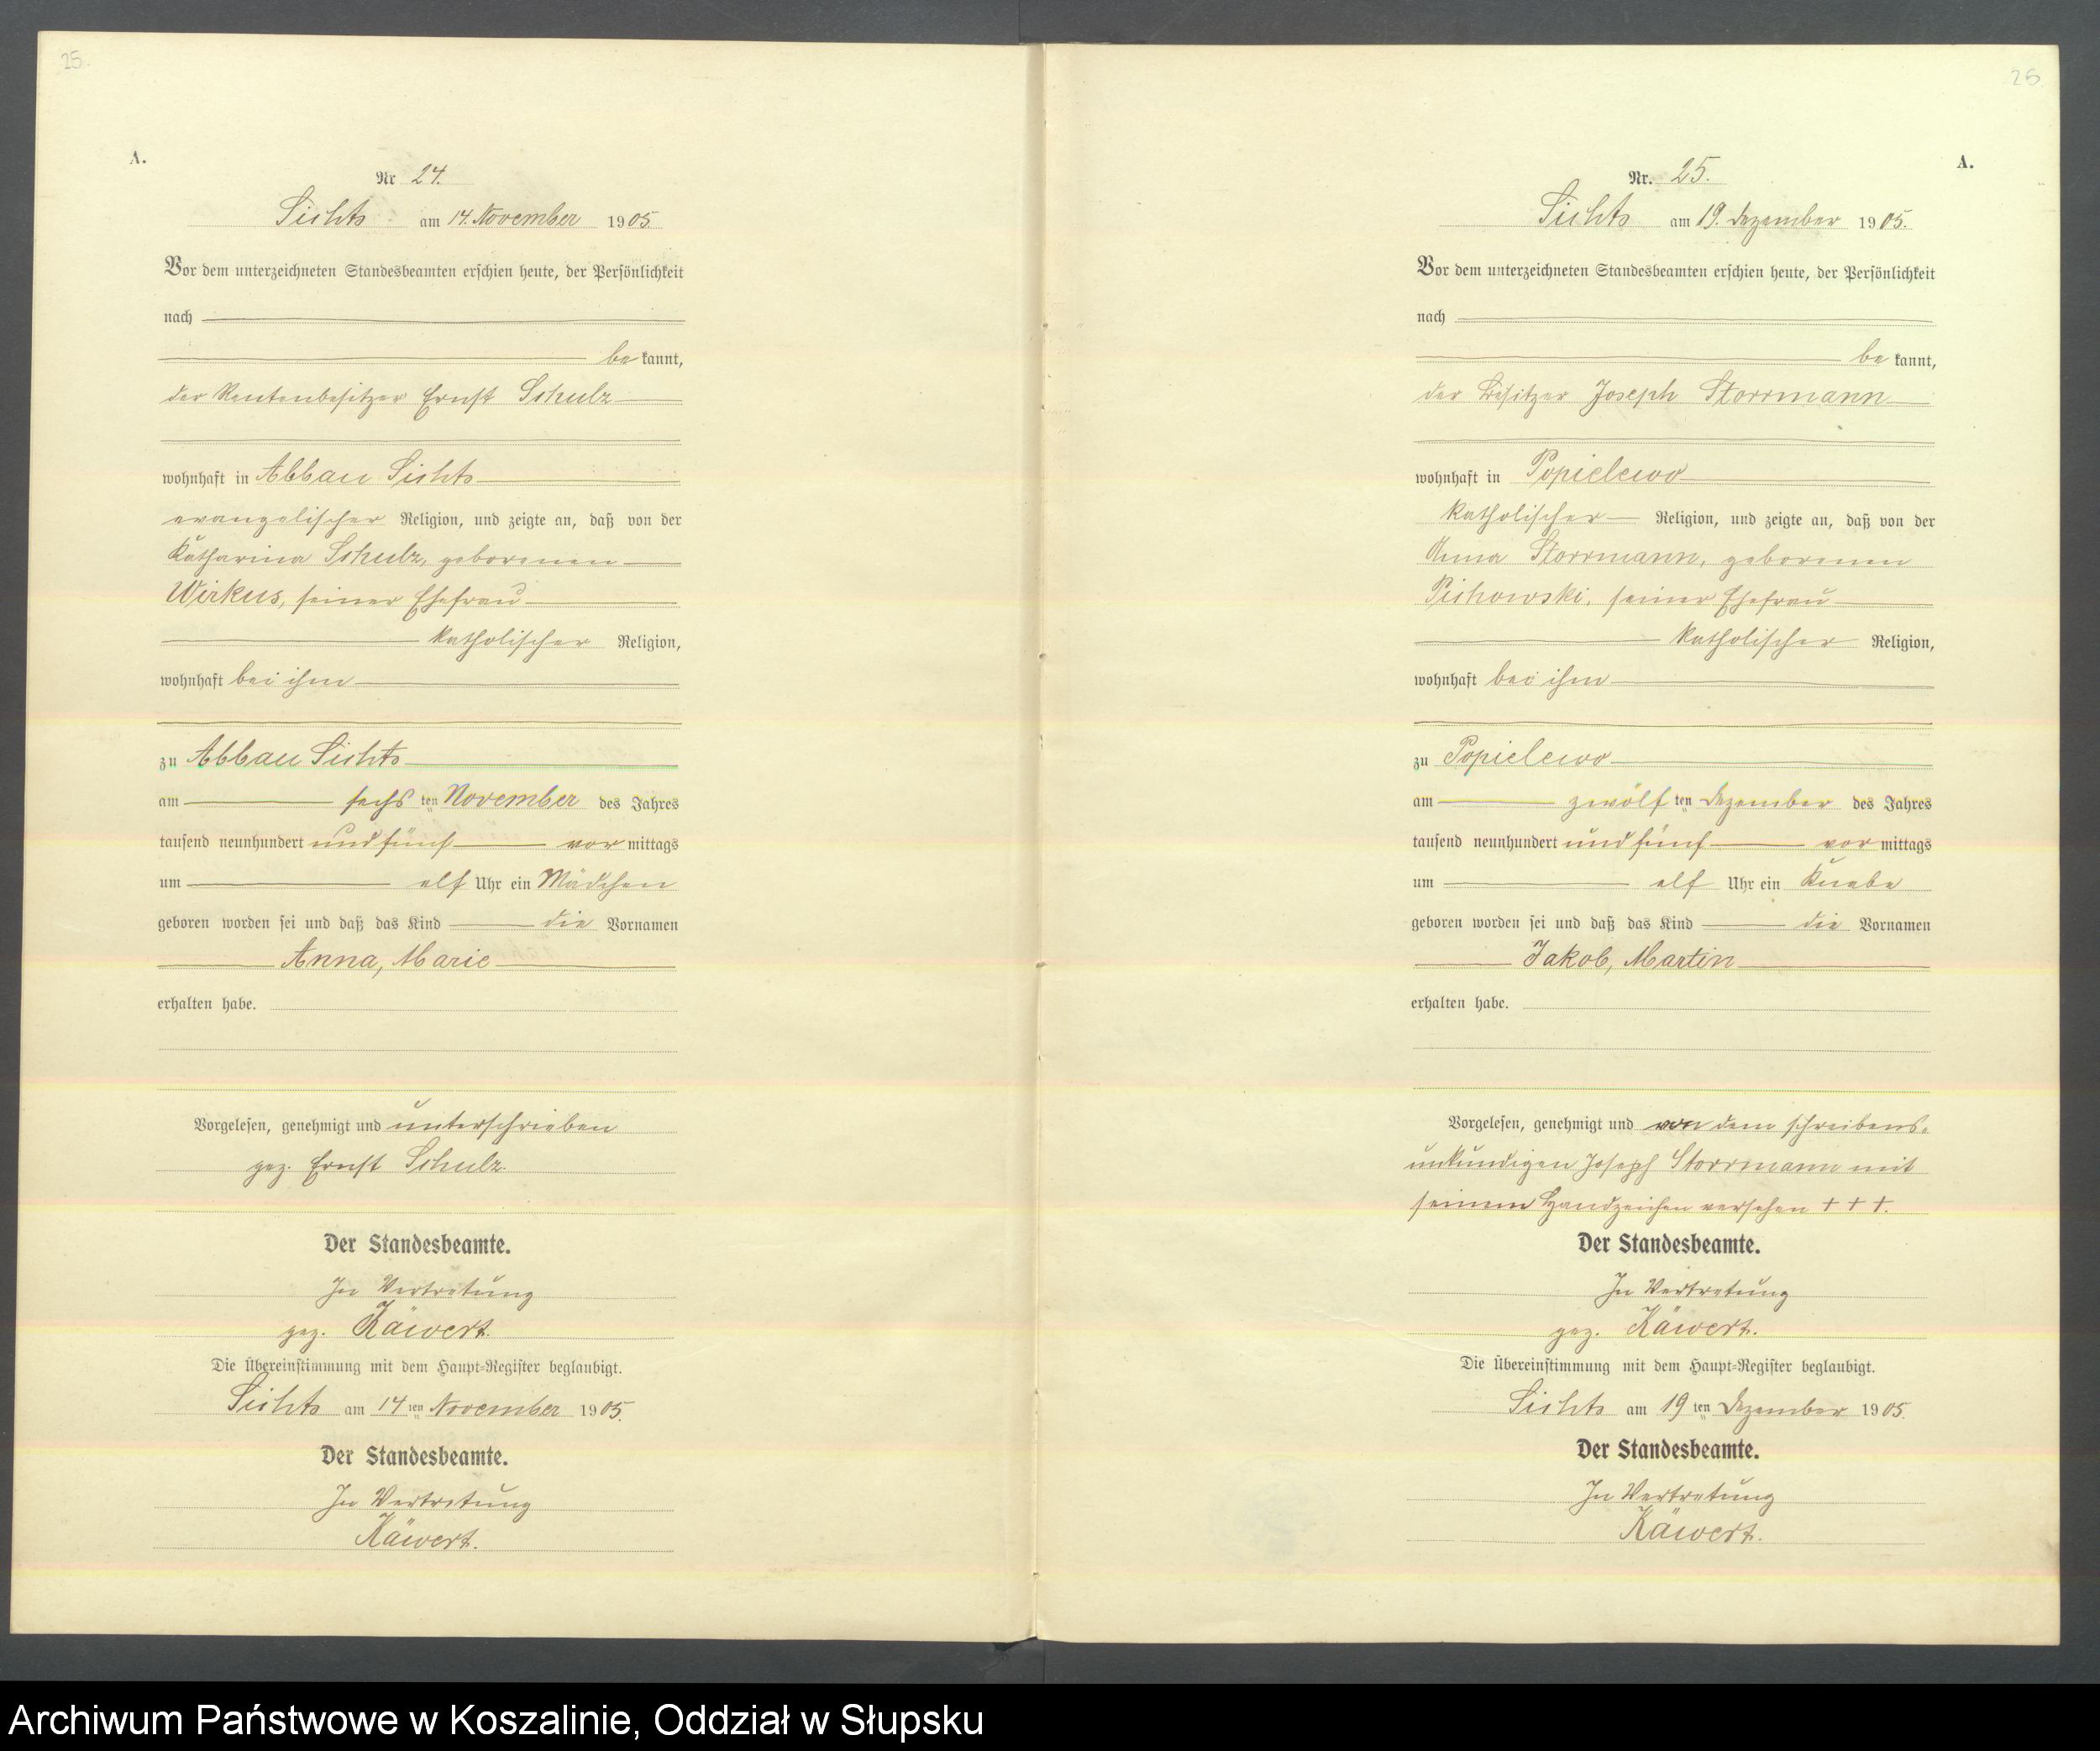 25.
A.
Nr 24.
Lichts am 14. November 1905.
Vor dem unterzeichneten Standesbeamten erschien heute, der Persönlichkeit
nach
be kannt,
der Rentenbesitzer Ernst Schulz
wohnhaft in Abbau Sichts
evangelischer Religion, und zeigte an, daß von der
Katharina Schulz, geborenen
Wirkus, seiner Ehefrau
katholischer Religion,
wohnhaft bei ihm
zu Abbau Sichts
am sechs ten November des Jahres
tausend neunhundert und fünf vor mittags
um elf Uhr ein Mädchen
geboren worden sei und daß das Kind die Vornamen
Anna, Marie
erhalten habe.
Vorgelesen, genehmigt und unterschrieben
gez. Ernst Schulz.
Der Standesbeamte.
In Vertretung
gez. Käwert.
Die Übereinstimmung mit dem Haupt-Register beglaubigt.
Sichts am 14 ten November 1905.
Der Standesbeamte.
In Vertretung
Käwert.
25
A.
Nr. 25.
Sichts am 19. Dezember 1905.
Vor dem unterzeichneten Standesbeamten erschien heute, der Persönlichkeit
nach
be kannt,
der Besitzer Joseph Storrmann
wohnhaft in Popielewo
katholischer Religion, und zeigte an, daß von der
Anna Storrmann, geborenen
Pichowski, seiner Ehefrau
katholischer Religion,
wohnhaft bei ihm
zu Popielewo
am zwölf ten Dezember des Jahres
tausend neunhundert und fünf vor mittags
um elf Uhr ein Knabe
geboren worden sei und daß das Kind die Vornamen
Jakob, Martin
erhalten habe.
Vorgelesen, genehmigt und von dem schreibens-
unkundigen Joseph Storrmann mit
seinem Handzeichen versehen + + +.
Der Standesbeamte.
In Vertretung
gez. Käwert.
Die Übereinstimmung mit dem Haupt-Register beglaubigt.
Sichts am 19 ten Dezember 1905.
Der Standesbeamte.
In Vertretung
Käwert.
Archiwum Państwowe w Koszalinie, Oddział w Słupsku